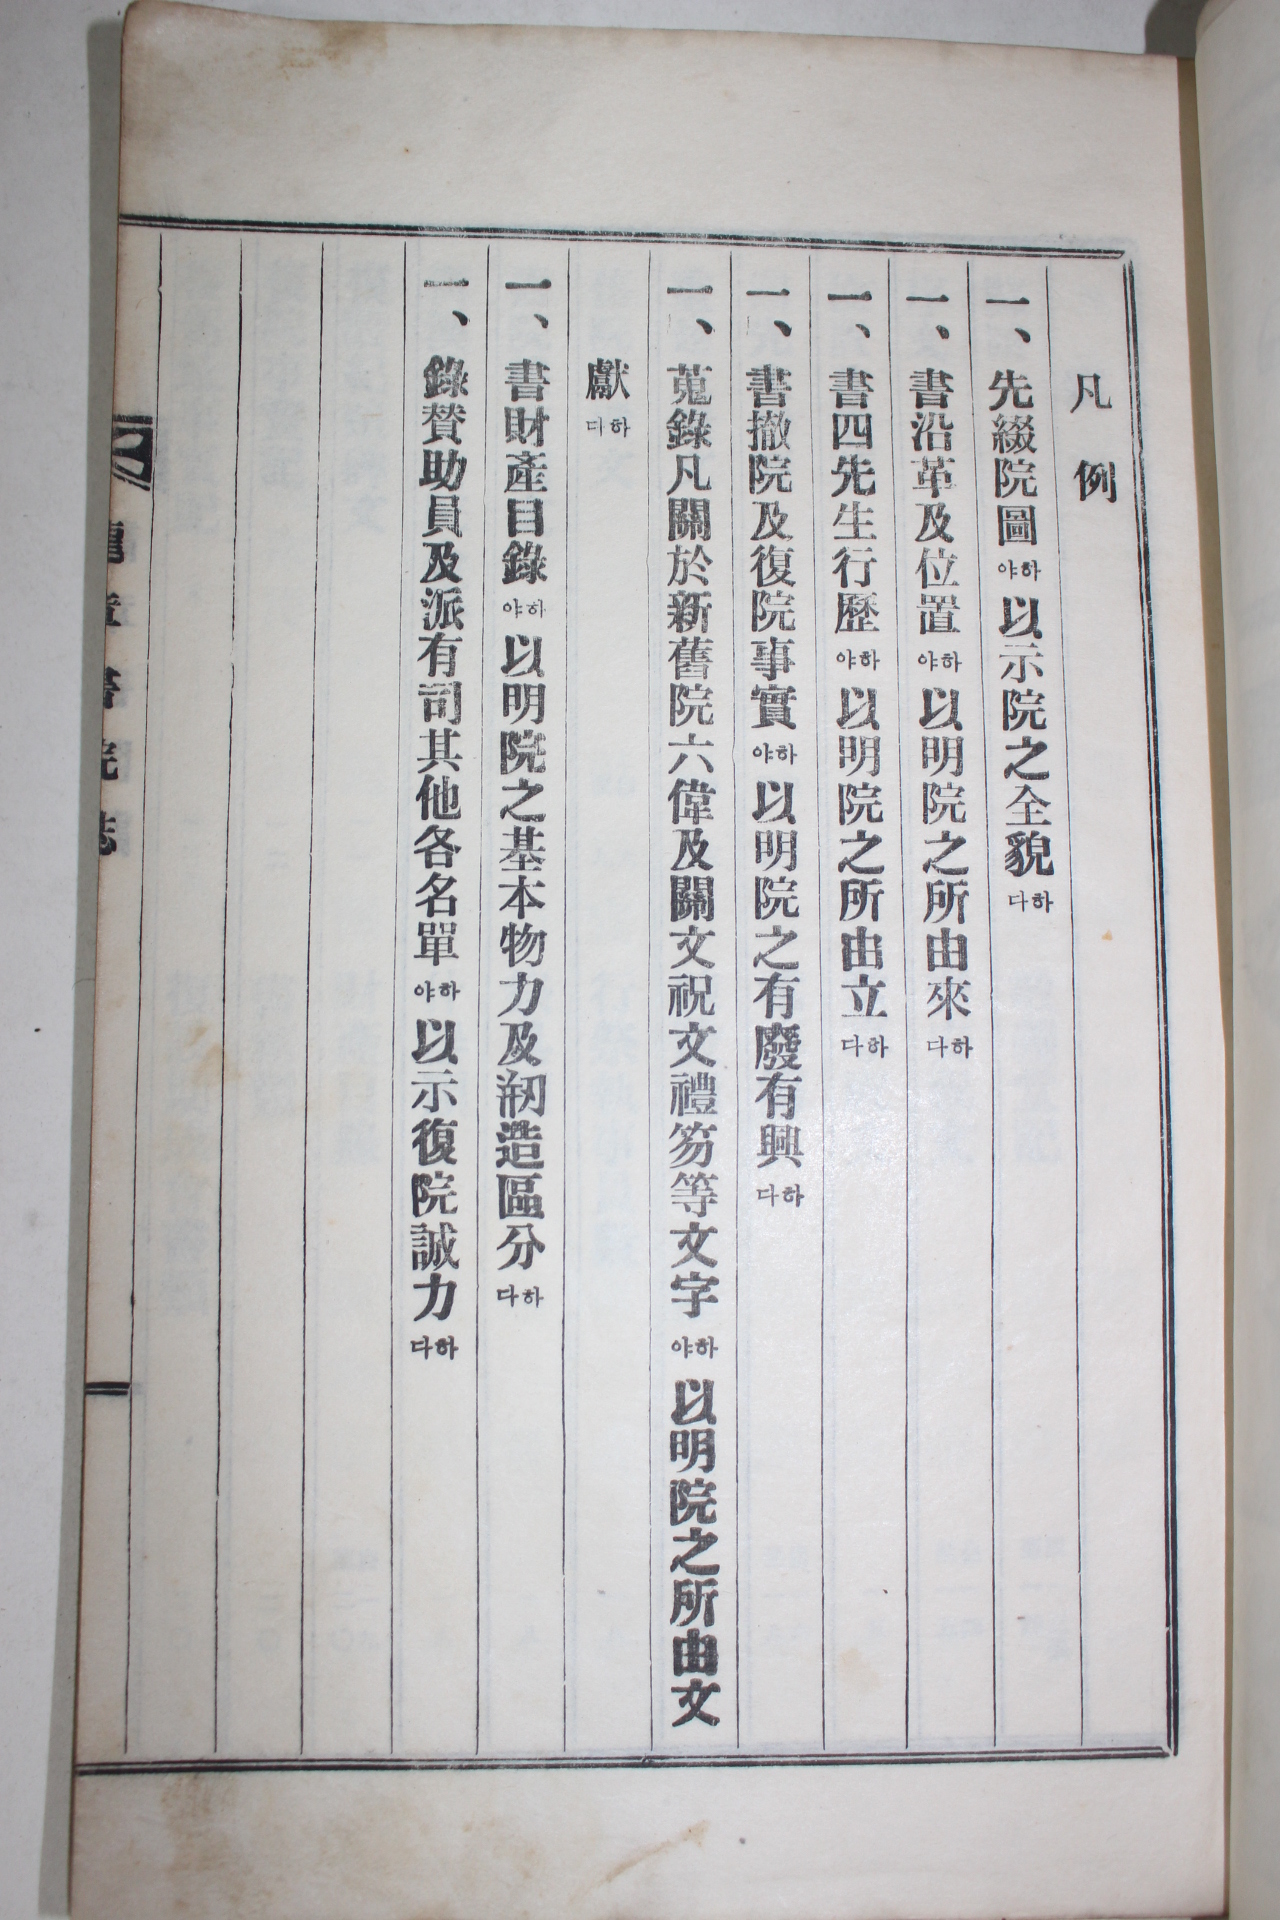 凡例
一、先綴院圖하야以示院之全貌하다
一、書沿革及位置하야以明院之所由來하다
一、書四先生行歷하야以明院之所由立하다
一、書撤院及復院事實하야以明院之有廢有興하다
一、蒐錄凡關於新舊院六偉及關文祝文禮笏等文字하야以明院之所由文
獻하다
一、書財產目錄하야以明院之基本物力及剏造區分하다
一、錄賛助員及派有司其他各名單하야以示復院誠力하다
書院誌